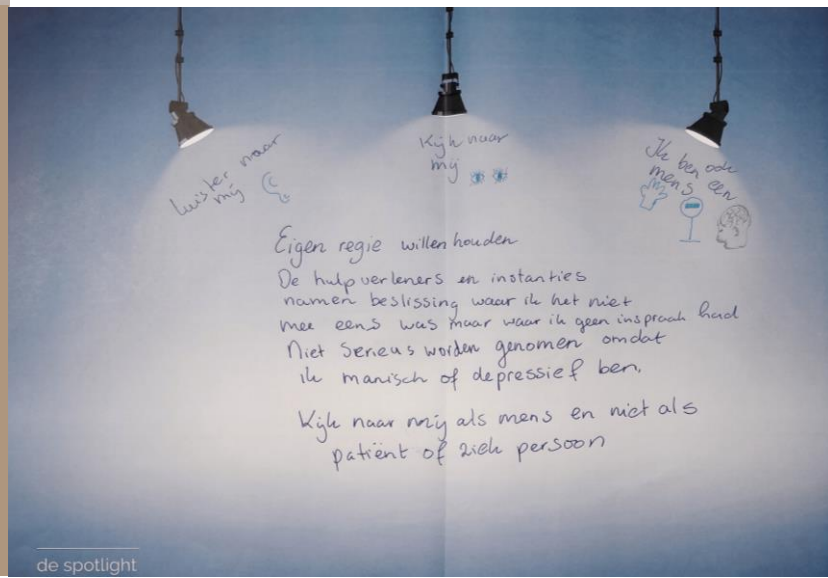 Luister naar
mij
Kijk naar
mij
Ik ben ook
mens een
Eigen regie willen houden
De hulpverleners en instanties
namen beslissing waar ik het niet
mee eens was maar waar ik geen inspraak had
Niet serieus worden genomen omdat
ik manisch of depressief ben.
Kijk naar mij als mens en niet als
patiënt of ziek persoon
de spotlight